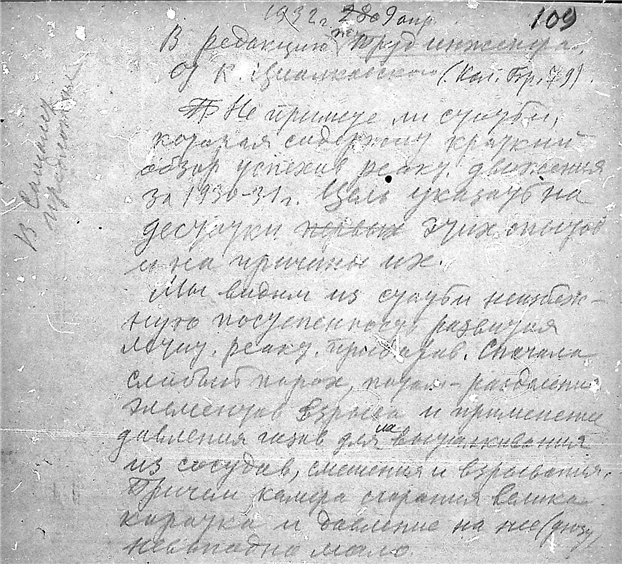 1932 г. 2 до 9 апр.
109
В редакцию "Труд инженера".
От К. Циолковского (Кал. Бр. 79).
Не примете ли статьи,
которая содержит краткий
обзор успехов реакт. движения
за 1930-31 г. Цель указать на
достатки первых этих опытов
и на причины их.
Мы видим из статьи неизбеж-
ную постепенность развития
реакт. приборов. Сначала
слабый порох, потом - разделение
элементов взрыва и применение
давления газов для выталкивания
из сосудов, смешения и взрывания.
Причем камера сгорания велика
коротка и давление на нее (дюзу)
невыгодно мало.
В